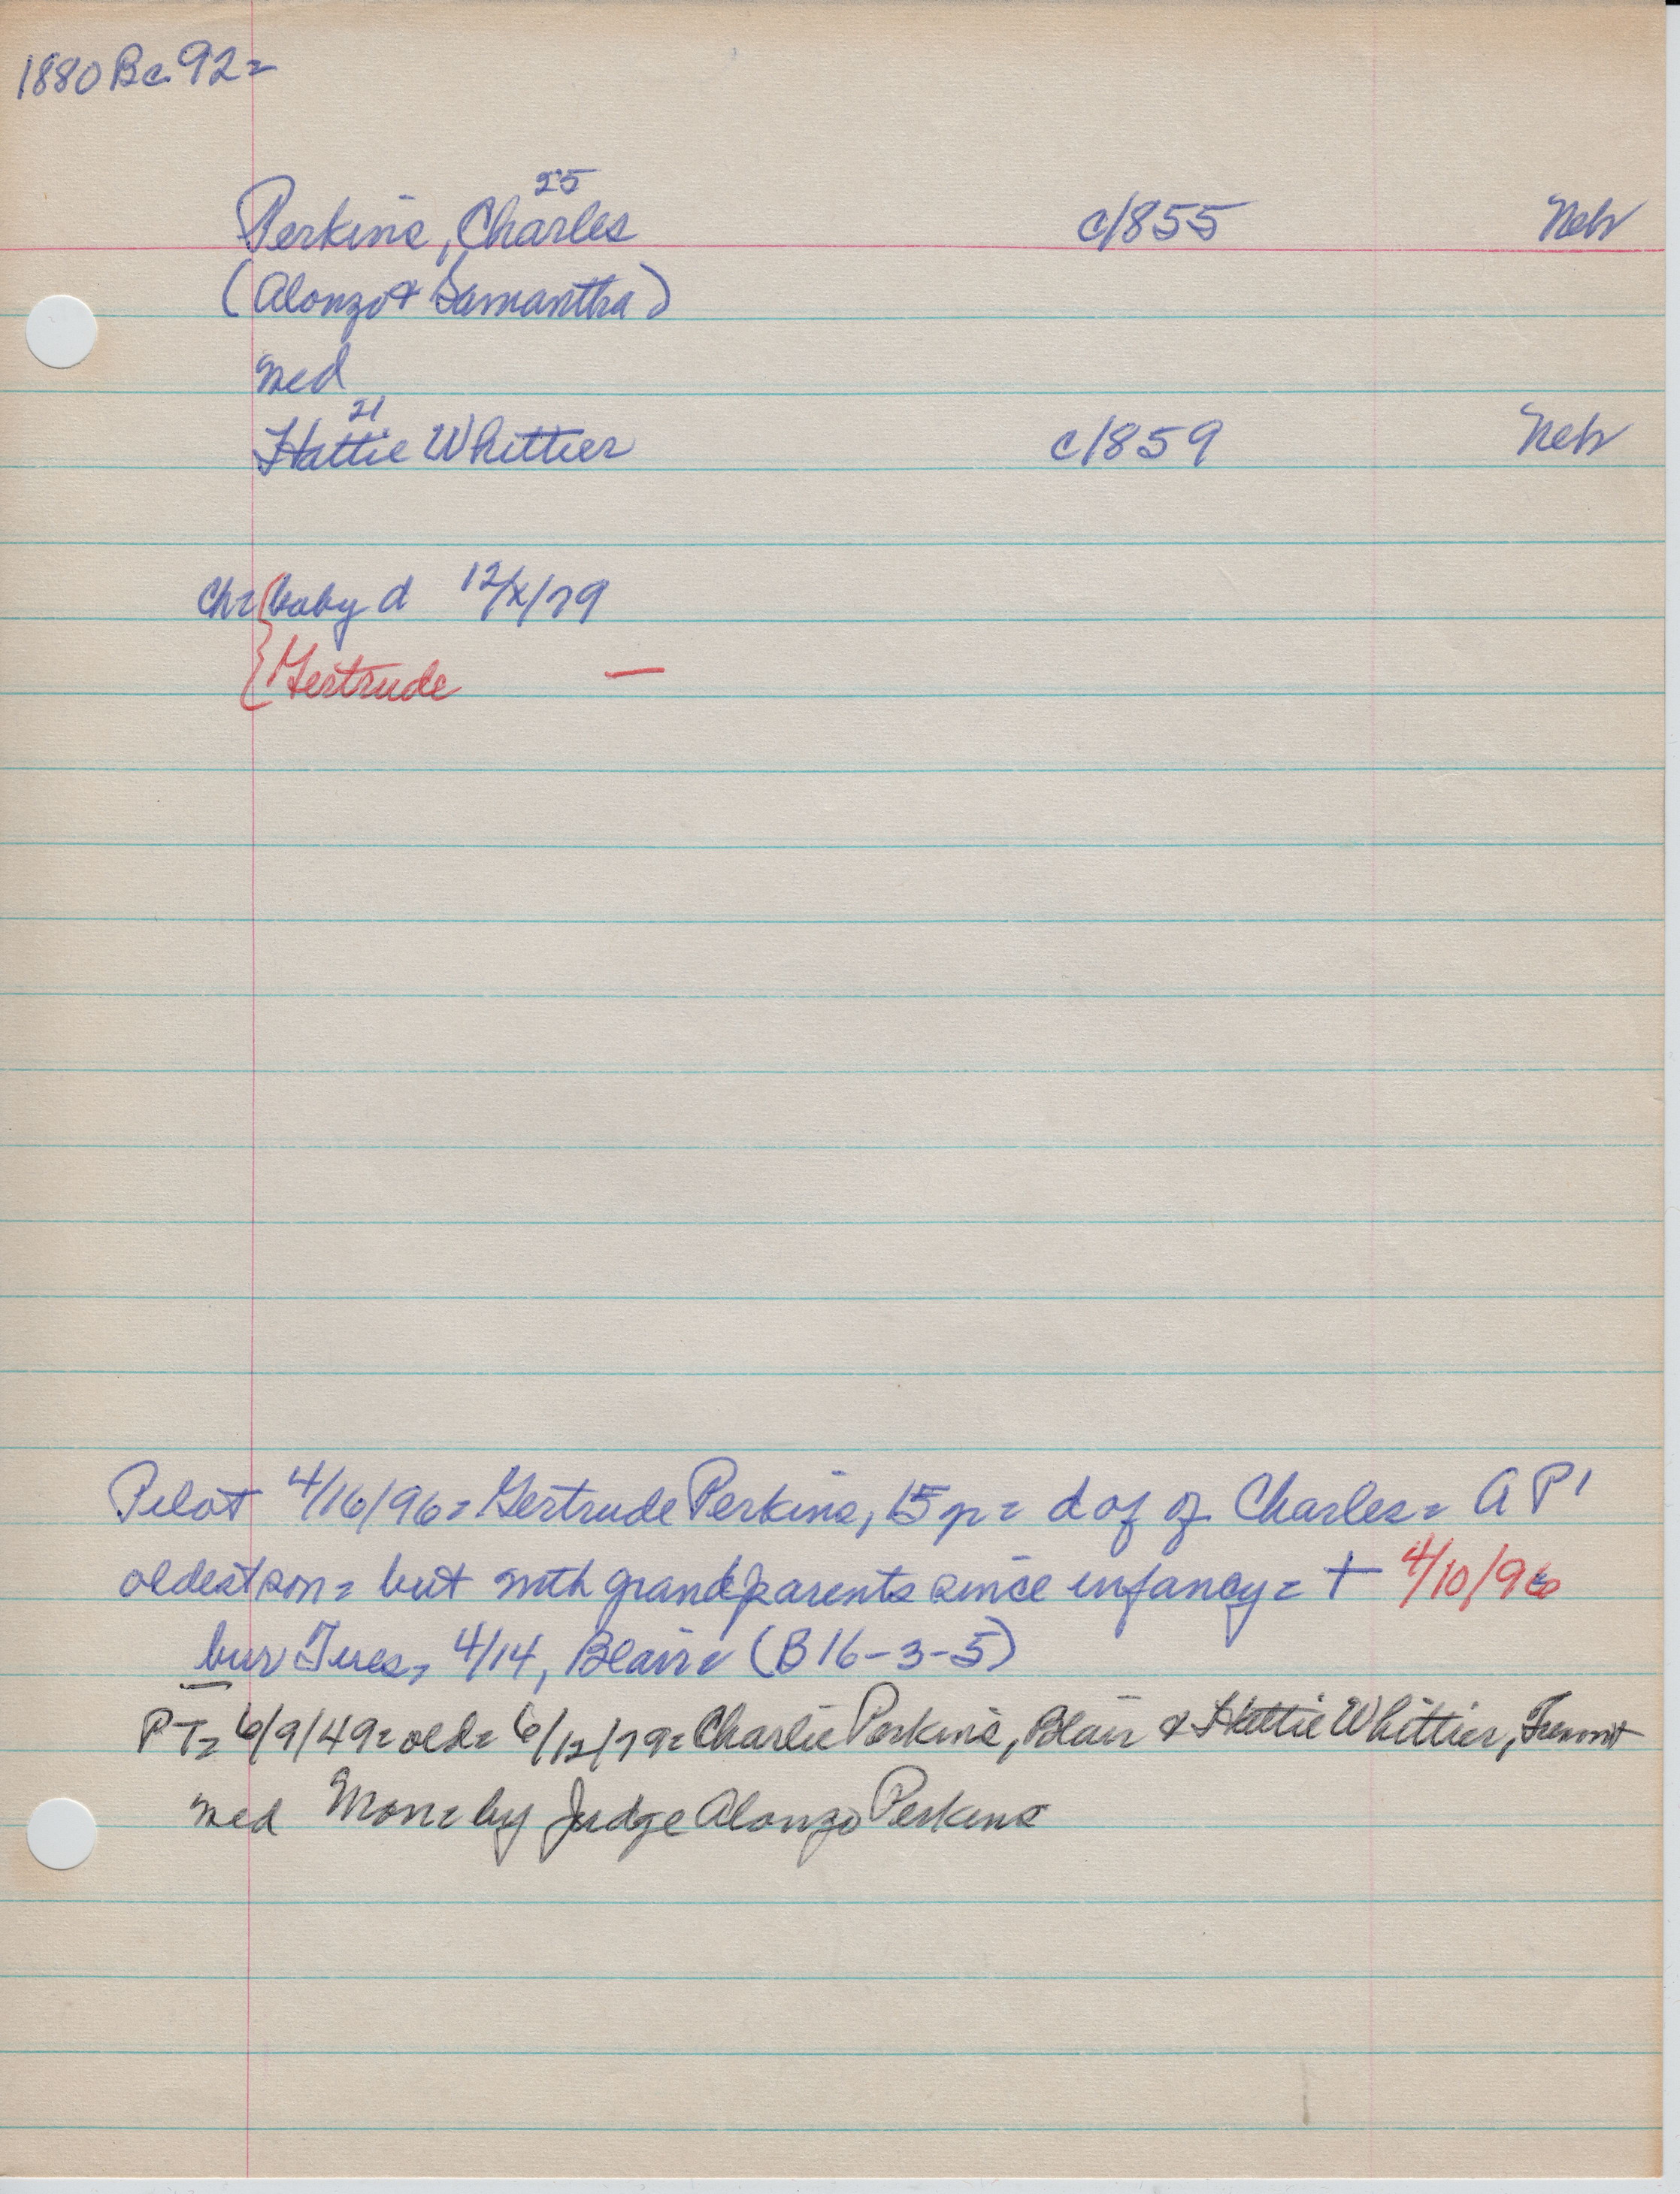 1880 Bc. 92=
25
Perkins, Charles c1855 Neb
(Alonzo & Samantha)
med
21
Hattie Whittier c1859 Neb
Ch= baby d 12/x/79
Gertrude —
Pilot 4/16/96= Gertrude Perkins, 15 yr= d of Charles= A P'
oldest son= but with grandparents since infancy= † 4/10/96
bur Tues, 4/14, Blair= (B 16-3-5)
PT= 6/9/49= old= 6/12/79= Charlie Perkins, Blair & Hattie Whittier, Fremont
med Mon= by Judge Alonzo Perkins